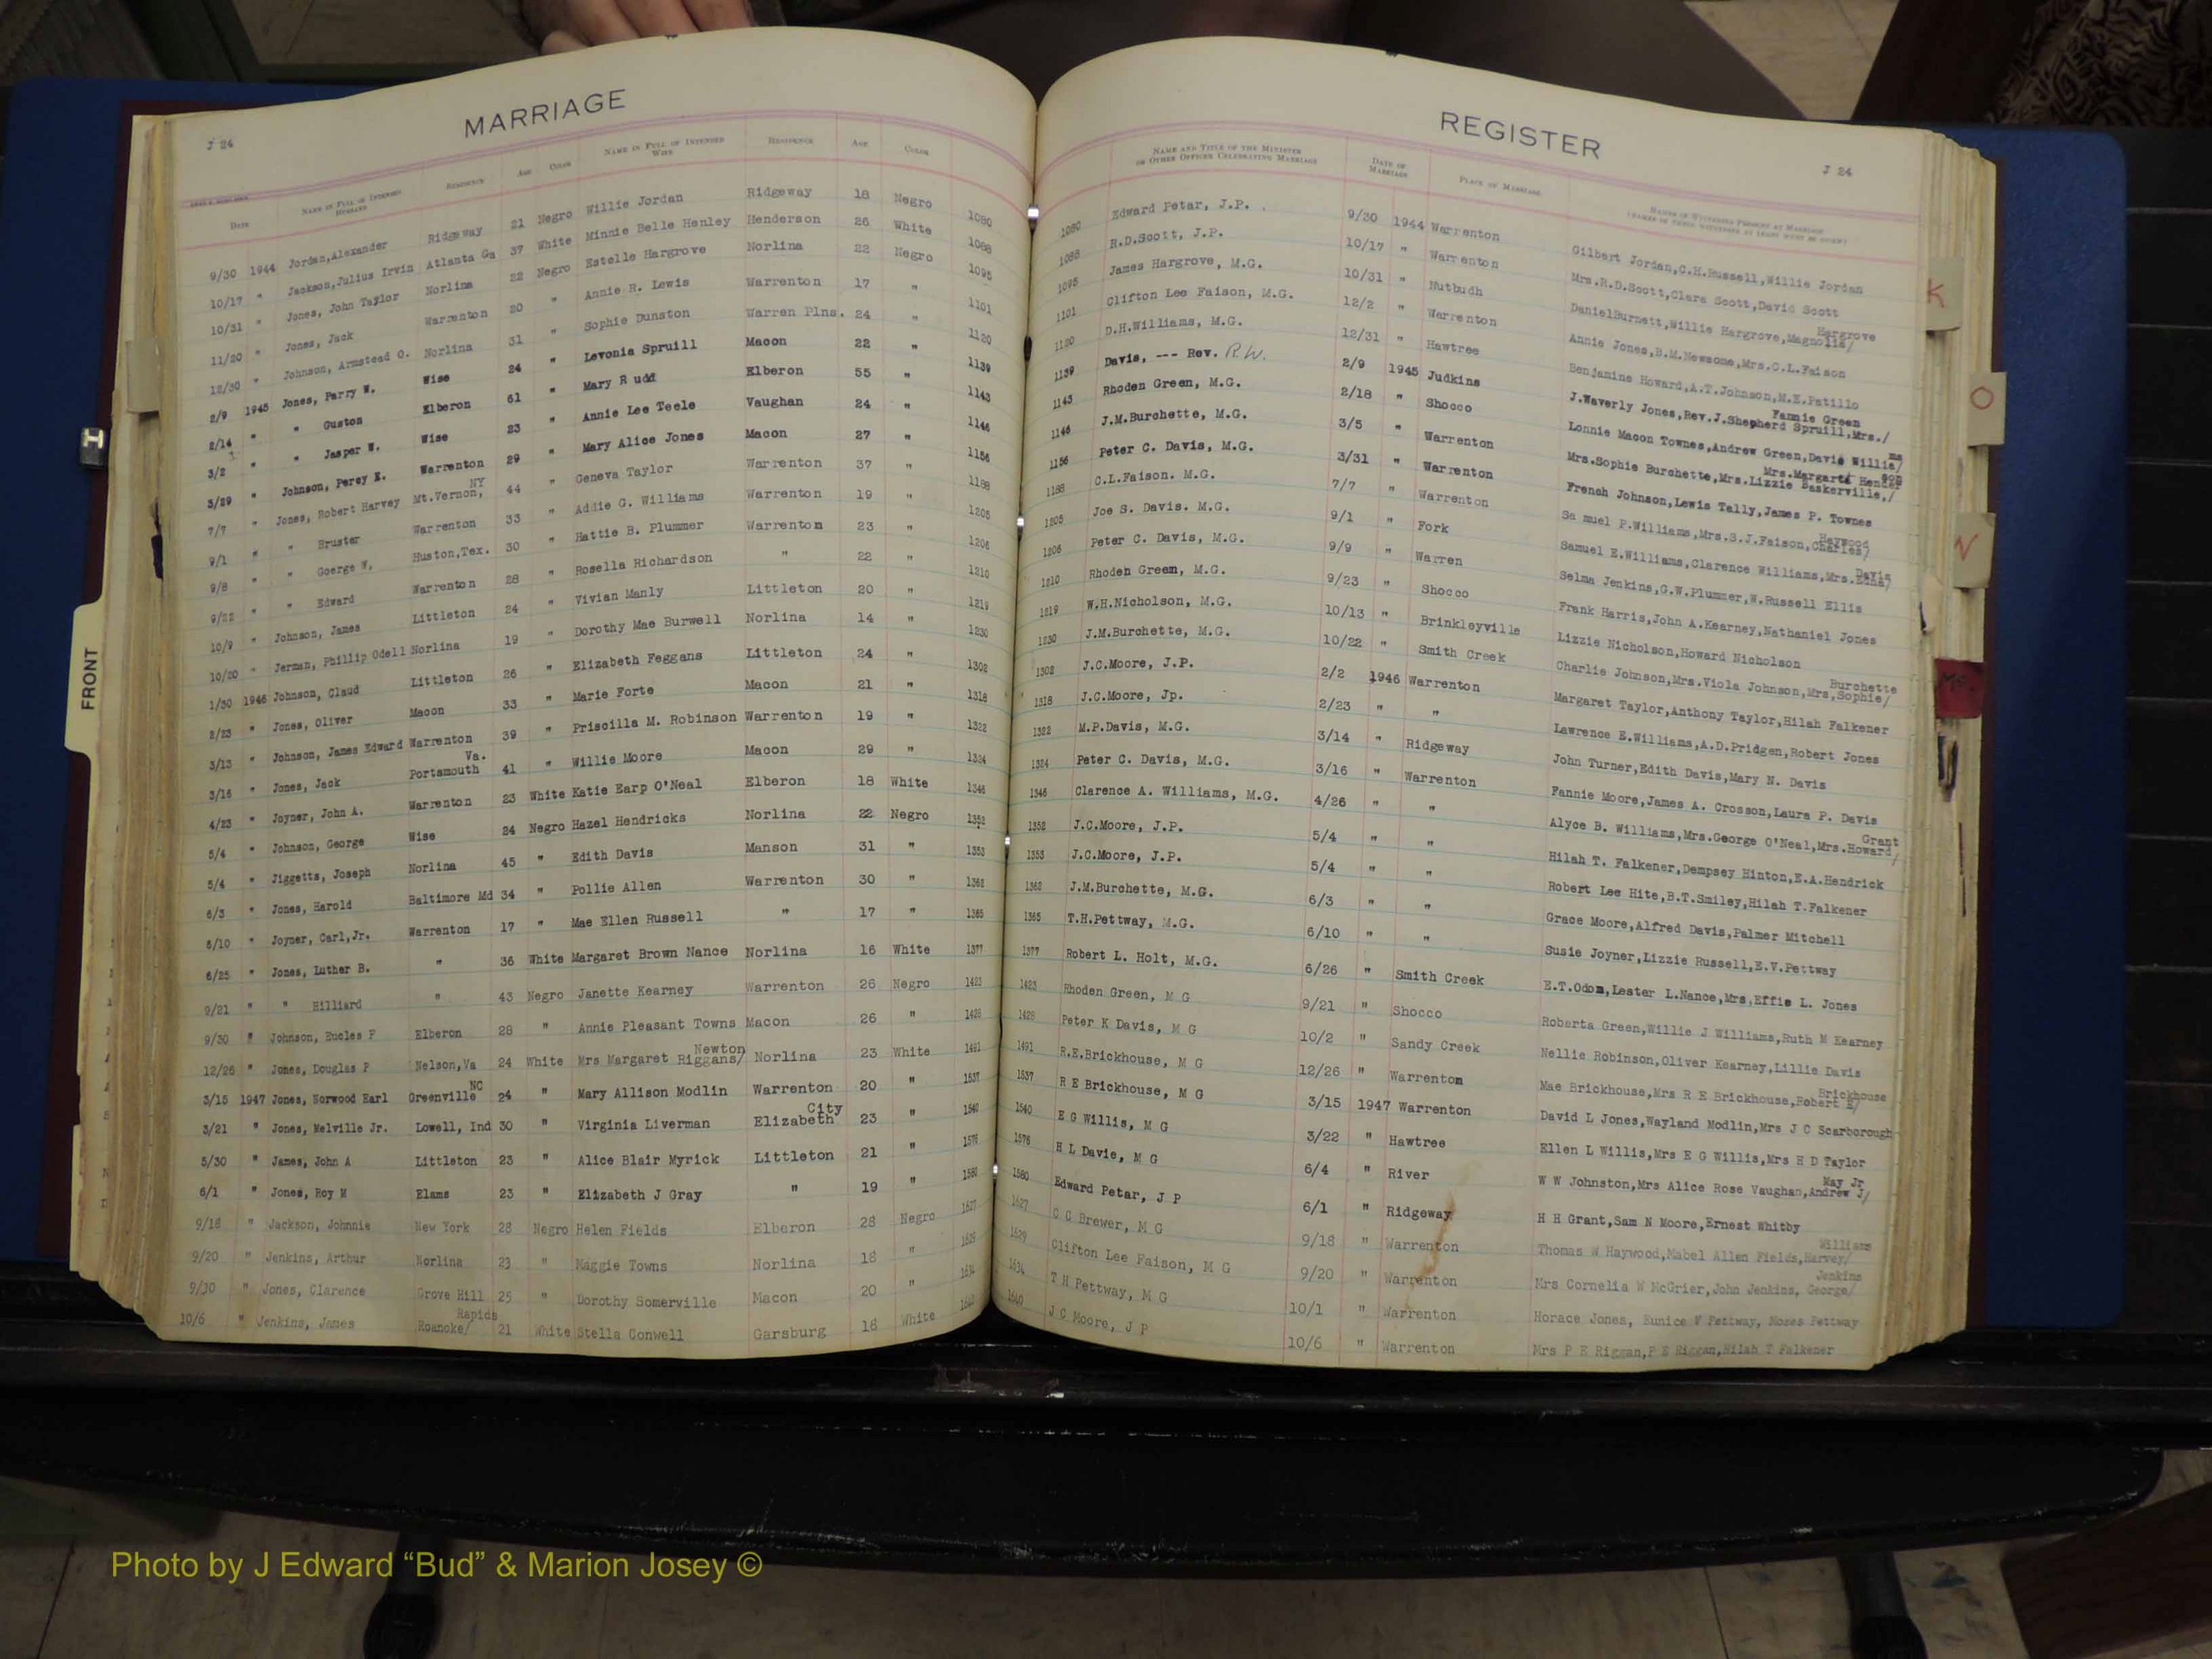 MARRIAGE
J 24
Date NAME IN FULL OF INTENDED HUSBAND RESIDENCE AGE COLOR NAME IN FULL OF INTENDED WIFE RESIDENCE AGE COLOR
9/30 1944 Jordan,Alexander Ridgeway 21 Negro Willie Jordan Ridgeway 18 Negro 1080
10/17 " Jackson,Julius Irvin Atlanta Ga 37 White Minnie Belle Henley Henderson 26 White 1088
10/31 " Jones, John Taylor Norlina 22 Negro Estelle Hargrove Norlina 22 Negro 1095
11/20 " Jones, Jack Warrenton 20 " Annie H. Lewis Warrenton 17 " 1101
12/30 " Johnson, Armstead O. Norlina 31 " Sophie Dunston Warren Plns. 24 " 1120
2/9 1945 Jones, Perry W. Wise 24 " Levonia Spruill Macon 22 " 1139
2/14 " " Guston Elberon 61 " Mary Rudd Elberon 55 " 1143
3/2 " " Jasper W. Wise 23 " Annie Lee Teele Vaughan 24 " 1146
3/29 " Johnson, Percy E. Warrenton 29 " Mary Alice Jones Macon 27 " 1156
7/7 " Jones, Robert Harvey Mt.Vernon, NY 44 " Geneva Taylor Warrenton 37 " 1188
9/1 " " Bruster Warrenton 33 " Addie G. Williams Warrenton 19 " 1205
9/8 " " Goerge W, Huston,Tex. 30 " Hattie B. Plummer Warrenton 23 " 1206
9/22 " " Edward Warrenton 28 " Rosella Richardson " 22 " 1210
10/9 " Johnson, James Littleton 24 " Vivian Manly Littleton 20 " 1219
10/20 " Jerman, Phillip Odell Norlina 19 " Dorothy Mae Burwell Norlina 14 " 1230
1/30 1946 Johnson, Claud Littleton 26 " Elizabeth Feggans Littleton 24 " 1302
2/23 " Jones, Oliver Macon 33 " Marie Forte Macon 21 " 1318
3/13 " Johnson, James Edward Warrenton 39 " Priscilla M. Robinson Warrenton 19 " 1322
3/16 " Jones, Jack Portsmouth Va. 41 " Willie Moore Macon 29 " 1324
4/23 " Joyner, John A. Warrenton 23 White Katie Earp O'Neal Elberon 18 White 1346
5/4 " Johnson, George Wise 24 Negro Hazel Hendricks Norlina 22 Negro 1352
5/4 " Jiggetts, Joseph Norlina 45 " Edith Davis Manson 31 " 1353
6/3 " Jones, Harold Baltimore Md 34 " Pollie Allen Warrenton 30 " 1362
6/10 " Joyner, Carl,Jr. Warrenton 17 " Mae Ellen Russell " 17 " 1365
6/25 " Jones, Luther B. " 36 White Margaret Brown Nance Norlina 16 White 1377
9/21 " " Hilliard " 43 Negro Janette Kearney Warrenton 26 Negro 1423
9/30 " Johnson, Eucles P Elberon 28 " Annie Pleasant Towns Macon 26 " 1428
12/26 " Jones, Douglas P Nelson,Va 24 White Mrs Margaret Riggans/ Newton Norlina 23 White 1491
3/15 1947 Jones, Norwood Earl Greenville NC 24 " Mary Allison Modlin Warrenton 20 " 1537
3/21 " Jones, Melville Jr. Lowell, Ind 30 " Virginia Liverman Elizabeth City 23 " 1540
5/30 " James, John A Littleton 23 " Alice Blair Myrick Littleton 21 " 1576
6/1 " Jones, Roy M Elams 23 " Elizabeth J Gray " 19 " 1580
9/18 " Jackson, Johnnie New York 28 Negro Helen Fields Elberon 28 Negro 1627
9/20 " Jenkins, Arthur Norlina 23 " Maggie Towns Norlina 18 " 1629
9/30 " Jones, Clarence Grove Hill 25 " Dorothy Somerville Macon 20 " 1634
10/6 " Jenkins, James Roanoke/ Rapids 21 White Stella Conwell Garsburg 18 White
REGISTER
J 24
NAME AND TITLE OF THE MINISTER OR OTHER OFFICER CELEBRATING MARRIAGE DATE OF MARRIAGE PLACE OF MARRIAGE NAMES OF WITNESSES PRESENT AT MARRIAGE
1080 Edward Petar, J.P. 9/30 1944 Warrenton Gilbert Jordan,C.H.Russell,Willie Jordan
1088 R.D.Scott, J.P. 10/17 " Warrenton Mrs.R.D.Scott,Clara Scott,David Scott
1095 James Hargrove, M.G. 10/31 " Nutbudh DanielBurnett,Willie Hargrove,Magnolia/ Hargrove
1101 Clifton Lee Faison, M.G. 12/2 " Warrenton Annie Jones,B.M.Newsome,Mrs.C.L.Faison
1120 D.H.Williams, M.G. 12/31 " Hawtree Benjamine Howard,A.T.Johnson,M.E.Patillo
1139 Davis, --- Rev. R.W. 2/9 1945 Judkins J.Waverly Jones,Rev.J.Shepherd Spruill,Mrs./ Fannie Green
1143 Rhoden Green, M.G. 2/18 " Shocco Lonnie Macon Townes,Andrew Green,David Willia/ ms
1146 J.M.Burchette, M.G. 3/5 " Warrenton Mrs.Sophie Burchette,Mrs.Lizzie Baskerville,/ Mrs.Margarte Hender son
1156 Peter C. Davis, M.G. 3/31 " Warrenton French Johnson,Lewis Tally,James P. Townes
1188 C.L.Faison. M.G. 7/7 " Warrenton Samuel P.Williams,Mrs.S.J.Faison,Charles/ Haywood
1205 Joe S. Davis. M.G. 9/1 " Fork Samuel E.Williams,Clarence Williams,Mrs.Edna/ Davis
1206 Peter C. Davis, M.G. 9/9 " Warren Selma Jenkins,G.W.Plummer,W.Russell Ellis
1210 Rhoden Green, M.G. 9/23 " Shocco Frank Harris,John A.Kearney,Nathaniel Jones
1219 W.H.Nicholson, M.G. 10/13 " Brinkleyville Lizzie Nicholson,Howard Nicholson
1230 J.M.Burchette, M.G. 10/22 " Smith Creek Charlie Johnson,Mrs.Viola Johnson,Mrs,Sophie/ Burchette
1302 J.C.Moore, J.P. 2/2 1946 Warrenton Margaret Taylor,Anthony Taylor,Hilah Falkener
1318 J.C.Moore, Jp. 2/23 " " Lawrence E.Williams,A.D.Pridgen,Robert Jones
1322 M.P.Davis, M.G. 3/14 " Ridgeway John Turner,Edith Davis,Mary N. Davis
1324 Peter C. Davis, M.G. 3/16 " Warrenton Fannie Moore,James A. Crosson,Laura P. Davis
1346 Clarence A. Williams, M.G. 4/26 " " Alyce B. Williams,Mrs.George O'Neal,Mrs.Howard/ Grant
1352 J.C.Moore, J.P. 5/4 " " Hilah T. Falkener,Dempsey Hinton,E.A.Hendrick
1353 J.C.Moore, J.P. 5/4 " " Robert Lee Hite,B.T.Smiley,Hilah T.Falkener
1362 J.M.Burchette, M.G. 6/3 " " Grace Moore,Alfred Davis,Palmer Mitchell
1365 T.H.Pettway, M.G. 6/10 " " Susie Joyner,Lizzie Russell,E.V.Pettway
1377 Robert L. Holt, M.G. 6/26 " Smith Creek E.T.Odom,Lester L.Nance,Mrs,Effie L. Jones
1423 Rhoden Green, M G 9/21 " Shocco Roberta Green,Willie J Williams,Ruth M Kearney
1428 Peter K Davis, M G 10/2 " Sandy Creek Nellie Robinson,Oliver Kearney,Lillie Davis
1491 R.E.Brickhouse, M G 12/26 " Warrenton Mae Brickhouse,Mrs R E Brickhouse,Robert E/ Brickhouse
1537 R E Brickhouse, M G 3/15 1947 Warrenton David L Jones,Wayland Modlin,Mrs J C Scarborough
1540 E G Willis, M G 3/22 " Hawtree Ellen L Willis,Mrs E G Willis,Mrs H D Taylor
1576 H L Davie, M G 6/4 " River W W Johnston,Mrs Alice Rose Vaughan,Andrew J/ May Jr
1580 Edward Petar, J P 6/1 " Ridgeway H H Grant,Sam N Moore,Ernest Whitby
1627 C C Brewer, M G 9/18 " Warrenton Thomas W Haywood,Mabel Allen Fields,Harvey/ Williams
1629 Clifton Lee Faison, M G 9/20 " Warrenton Mrs Cornelia W McGrier,John Jenkins, George/ Jenkins
1634 T H Pettway, M G 10/1 " Warrenton Horace Jones, Eunice V Pettway, Moses Pettway
1640 J C Moore, J P 10/6 " Warrenton Mrs P E Riggan,P E Riggan,Hilah T Falkener
FRONT
K
O
N
Mc.
Photo by J Edward “Bud” & Marion Josey ©